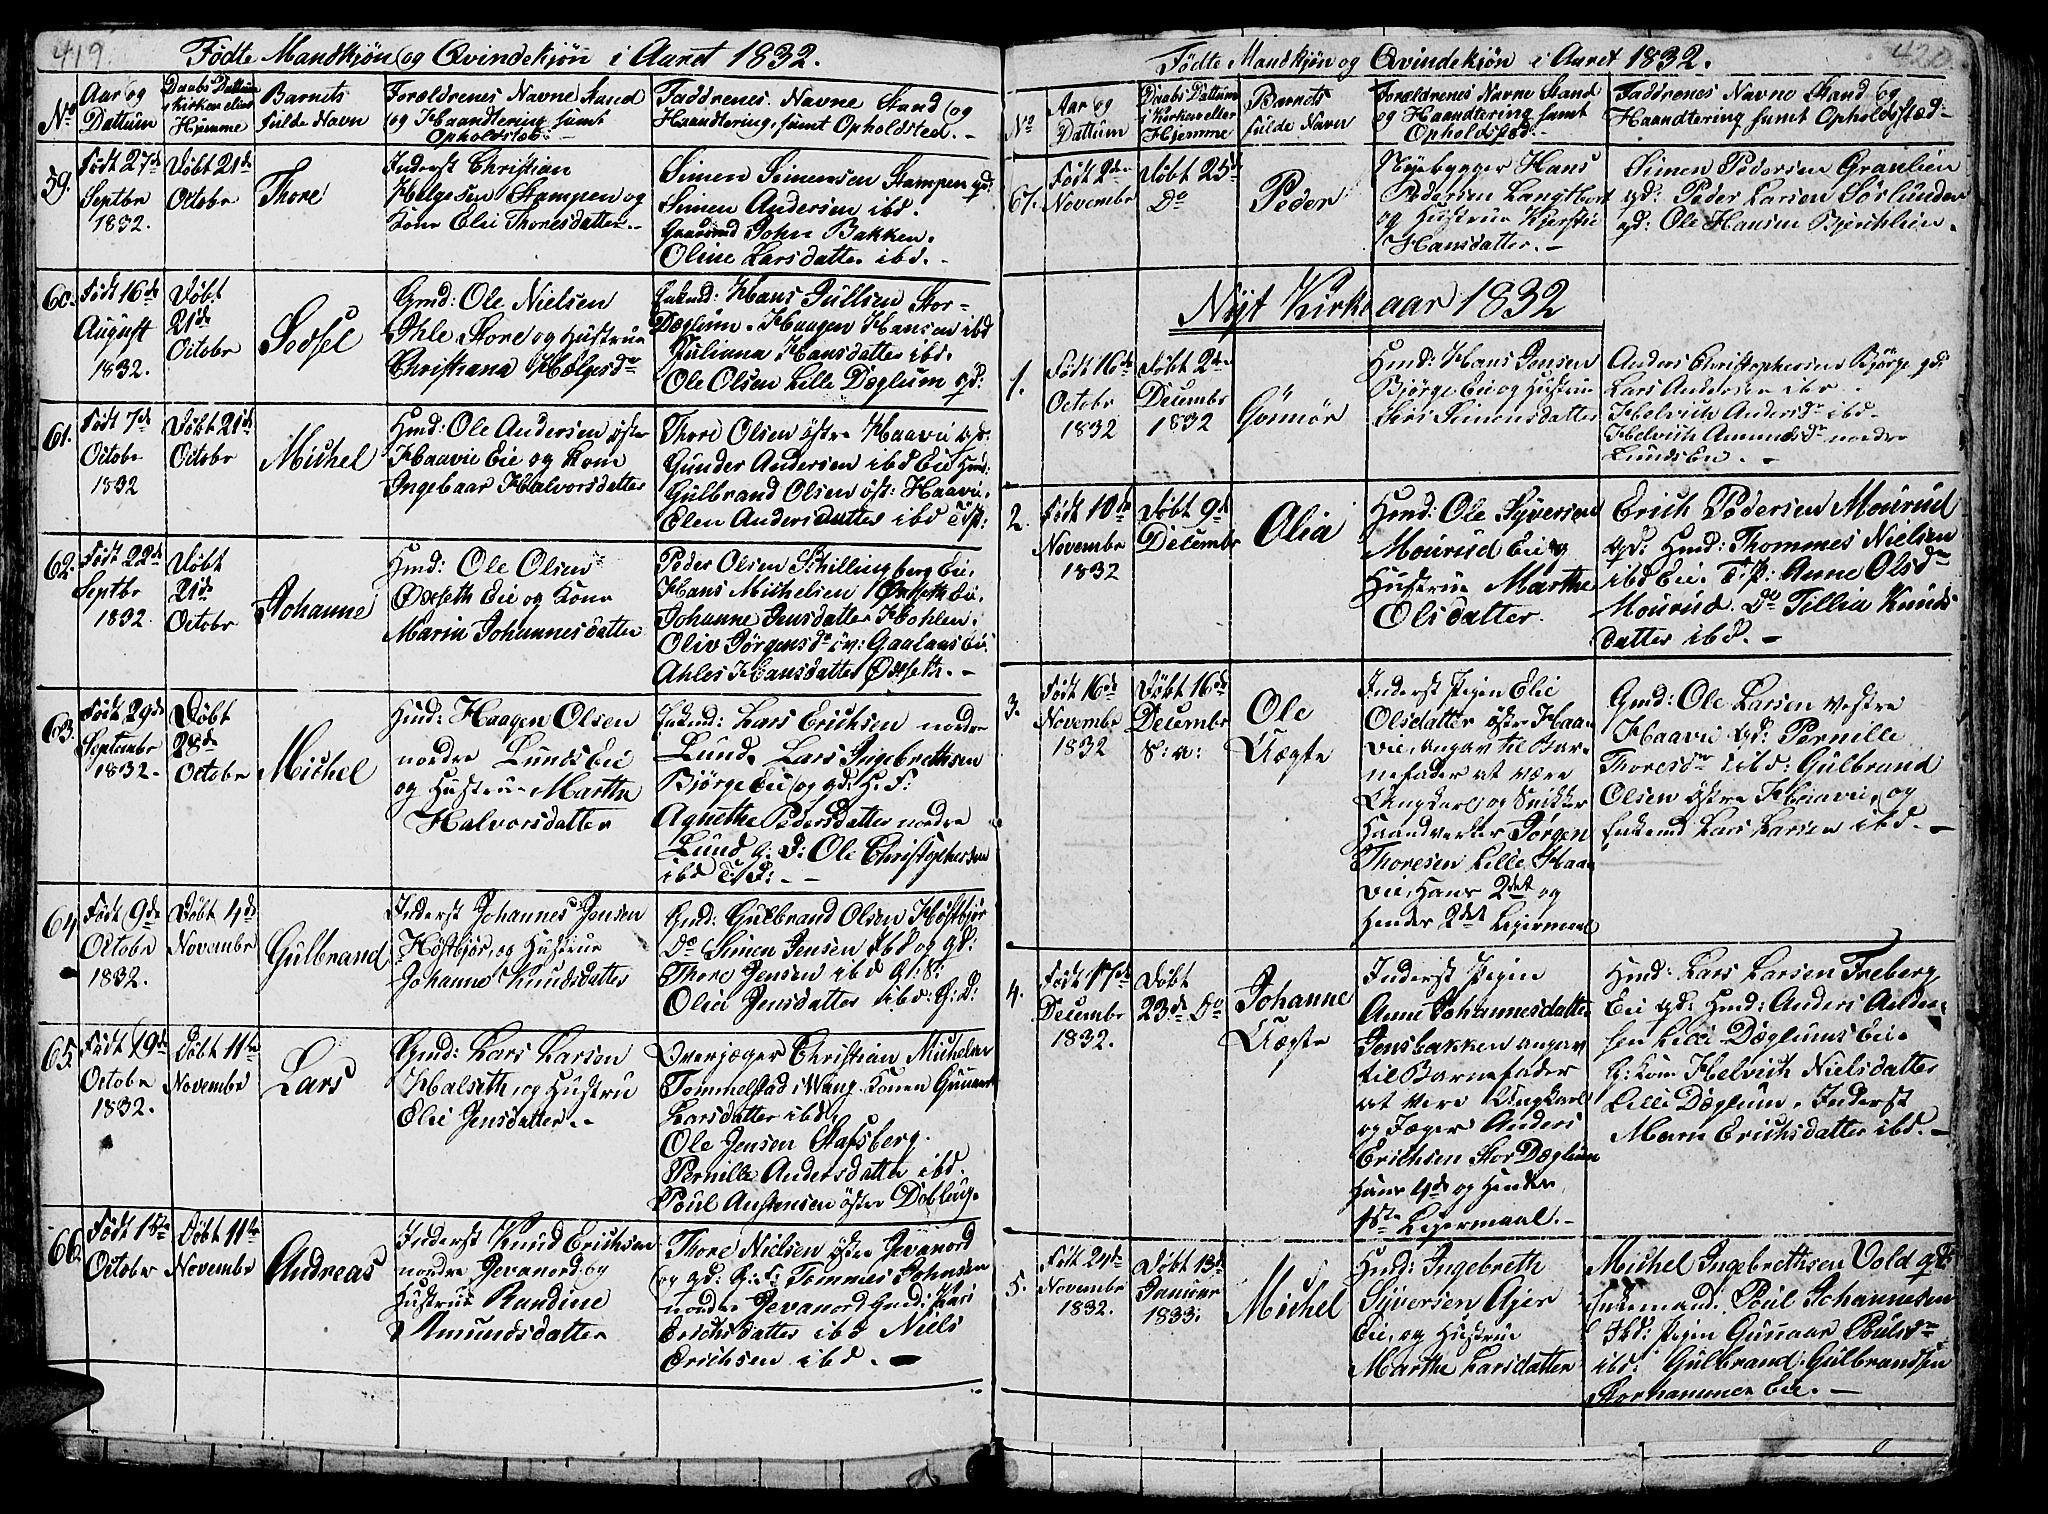 419.
Fødte Mandkjøn og Qvindekjøn i Aaret 1832.
No
Aar og
Dattum
Daabs Dattum
i Kirken eller
Hjemme
Barnets
fulde Navn
Forældrenes Navne Stand
og Haandtering samt
Opholdsted.
Faddrenes Navne Stand og
Haandtering, samt Opholdsted.
59.
Født 27de
Septbr
1832.
Døbt 21de
Octobr
Thore
Inderst Christian
Helgesen Stampen og
Kone Elie Thoresdatter.
Simen Simensen Stampen gd:
Simen Andersen ibd.
John Bakken.
Oline Larsdatter ibd.
60.
Født 16de
August
1832.
Døbt
21de
Octobr
Sedsel
Gmd: Ole Nielsen
Ihle Store og Hustrue
Christiana Helgesdr
Enkmd: Hans Jullsen Stor-
Dæglum. Haagen Hansen ibd
Juliana Hansdatter ibd.
Ole Olsen Lille Dæglum gd:
61.
Født 7de
Octobr
1832
Døbt 21de
Octobr
Michel
Hmd: Ole Andersen øster
Haavie Eie og Kone
Ingebaar Halvorsdatter
Thore Olsen østre Haavie gd:
Gunder Andersen ibd Eie Hmd:
Gulbrand Olsen øst: Haavie.
Elen Andersdatter ibd T:p:
62.
Født 22de
Septbr
1832.
Døbt
21de
Octobr
Johanne
Hmd: Ole Olsen
Ødeseth Eie og Kone
Marin Johannesdatter
Peder Olsen Skillingberg Eie.
Hans Michelsen Eie.
Johanne Jensdatter Hohlen.
Oliv Jørgensdr øv: Gaalaas Ei.
Ahles Hansdatter Ødeseth.
63.
Født 29de
Septembr
1832.
Døbt
28de
Octobr
Michel
Hmd: Haagen Olsen
nordre Lunds Eie
og Hustrue Marthe
Halvorsdatter
Enkmd: Lars Erichsen nordre
Lund. Lars Ingebrethsen
Bjørge Eie og gd: H. S:
Agnethe Pedersdatter nordre
Lund g: D: Ole Christophersen
ibd T:p:
64
Født 9de
Octobr
1832.
Døbt 4de
Novembr
Gulbrand
Inderst Johannes Jensen
Høstbjør, og Hustrue
Johanne Knudsdatter
Gmd: Gulbrand Olsen Høstbjør
Do Simen Jensen Ibd og gd:
Thore Jensen ibd g: S:
Olea Jensdatter ibd: G: D:
65.
Født 19de
Octobr
1832.
Døbt 11te
Novembr
Lars
Gmd: Lars Larsen
Halseth, og Hustru
Elie Jensdatter.
Overjæger Christian Michelsen
Tommelstad i Wang. Konen Gunner
Larsdatter ibd
Ole Jensen Stafsberg.
Pernille Andersdatter ibd.
Poul Austensen østre Dobloug.
66.
Født 15te
Octobr
Døbt 11te
Novembr
Andreas
Inderst Knud Erichsen
nordre Jevanord og
Hustrue Randine
Amundsdatter
Thore Nielsen østre Jevanord
og gd: G: S: Tommes Johnsen
nordre Jevanord Gmd: Kari
Erichsdatter ibd Niels
Erichsen ibd.
420
Fødte Mandkjøn og Qvindekjøn i Aaret 1832.
No
Aar og
Dattum
Daabs Dattum
i Kirken eller
Hjemme
Barnets
fulde Navn
Forældrenes Navne Stand
og Haandtering samt
Opholdsted
Faddrenes Navne Stand og
Haandtering samt Opholdsted
67.
Født 2den
Novembr
Døbt 25de
Do
Peder
Nÿebygger Hans
Pedersen Langtbort
og Hustrue Kjerstie
Hansdatter.
Simen Pedersen Granlien
gd: Peder Larsen Sørlunden
gd: Ole Hansen Bjerchlien.
Nyt Kirkeaar 1832
1.
Født 16de
October
1832
Døbt 2den
Decembr
1832
Gønnør
Hmd: Hans Jensen
Bjørge Eie og Hustrue
Siri Simensdatter
Anders Christophersen Bjørge gd:
Lars Andersen ibd.
Helvich Andersdr ibd.
Helvich Amundsdr nordre
Lunds En.
2.
Født 10de
Novembr
1832
Døbt 9de
Decembr
Olia
Hmd: Ole Syversen
Mourud Eie og
Hustrue Marthe
Olsdatter.
Erich Pedersen Mourud
gd: Hmd: Thommes Nielsen
ibd Eie. T:p: Anne Olsdr
Mourud. Do Tillia Knuds
datter ibd.
3.
Født 16de
Novembr
1832
Døbt 16de
Decembr
S: v:
Ole
Uægte
Inderst Pigen Elie
Olsdatter østre Haa-
vie, angav til Bar-
nefader at være
Ungkarl og Snikker
Haandverker Jørgen
Thoresen Lille Haa-
vie, Hans 2det og
Hendes 2det Lejermaal
Gmd: Ole Larsen vestre
Haavie gd: Pernille
Thoresdr ibd: Gulbrand
Olsen østre Haavie, og
Enkemd Lars Larsen ibd.
4.
Født 17de
Decembr
1832.
Døbt
23de Do
Johanne
Uægte
Inderst Pigen
Anne Johannesdatter
Jensbakken angav
til Barnefader
at være Ungkarl
og Jæger Anders
Erichsen Stor Dæglum
Hans 4de og Hendes
1ste Lejermaal.
Hmd: Lars Larsen Freberg
Eie gd: Hmd: Anders Ander-
sen Lille Dæglums Eie.
G: Kone Helvich Nielsdatter
Lille Dæglum. Inderst
Maren Erichsdatter ibd.
5.
Født 24de
Novembr
1832.
Døbt 13de
Januar
1833.
Michel
Hmd: Ingebreth
Syversen Ajer
Eie, og Hustrue
Marthe Larsdatter
Michel Ingebrethsen Vold gd:
Enkemand. Poul Johannesen
Ibd: Pigen Gunnaar Poulsdr
ibd: Gulbrand Gulbrandsen
Storhammer Eie.